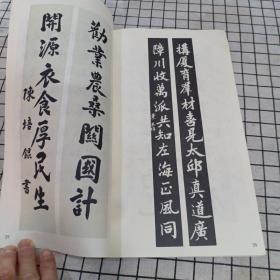 構廈育羣材喜見太邱真道廣
障川收萬派共知左海正風同
勸業農桑關國計
開源衣食厚民生
陳培錕書